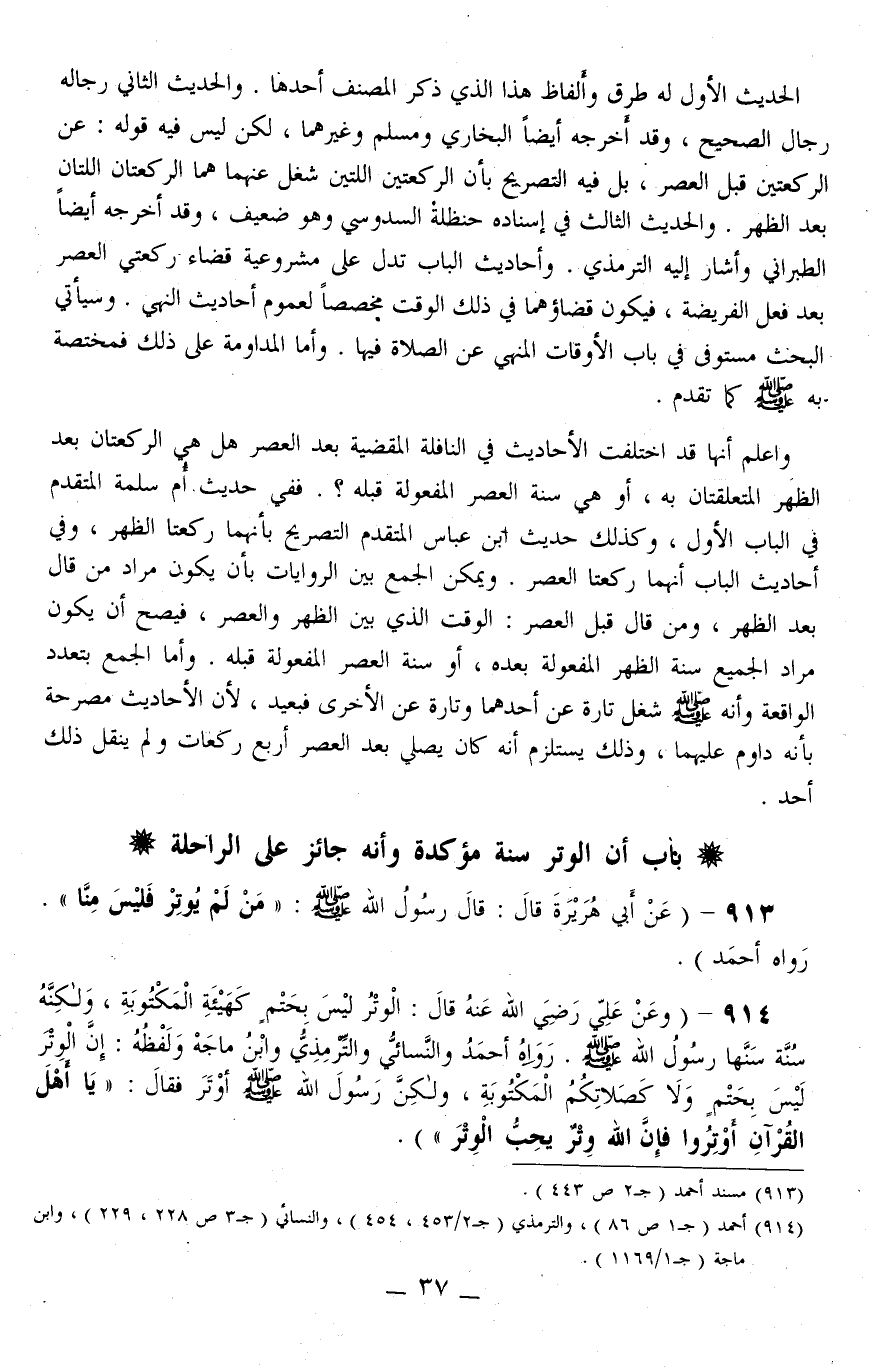 الحديث الأول له طرق وأَلفاظ هذا الذي ذكر المصنف أحدها . والحديث الثاني رجاله
رجال الصحيح ، وقد أَخرجه أيضاً البخاري ومسلم وغيرهما ، لكن ليس فيه قوله : عن
الركعتين قبل العصر ، بل فيه التصريح بأن الركعتين اللتين شغل عنهما هما الركعتان اللتان
بعد الظهر . والحديث الثالث في إسناده حنظلةْ السدوسي وهو ضعيف ، وقد أخرجه أيضاً
الطبراني وأشار إليه الترمذي . وأحاديث الباب تدل على مشروعية قضاء ركعتي العصر
بعد فعل الفريضة ، فيكون قضاؤهما في ذلك الوقت مخصصاً لعموم أحاديث النهي . وسيأتي
البحث مستوفى في باب الأوقات المنهي عن الصلاة فيها . وأما المداومة على ذلك فمختصة
به ﷺ كما تقدم .
واعلم أنها قد اختلفت الأحاديث في النافلة المقضية بعد العصر هل هي الركعتان بعد
الظهر المتعلقتان به ، أو هي سنة العصر المفعولة قبله ؟ . ففي حديث أُم سلمة المتقدم
في الباب الأول ، وكذلك حديث ابن عباس المتقدم التصريح بأنهما ركعتا الظهر ، وفي
أحاديث الباب أنهما ركعتا العصر . ويمكن الجمع بين الروايات بأن يكون مراد من قال
بعد الظهر ، ومن قال قبل العصر : الوقت الذي بين الظهر والعصر ، فيصح أن يكون
مراد الجميع سنة الظهر المفعولة بعده ، أو سنة العصر المفعولة قبله . وأما الجمع بتعدد
الواقعة وأنه ﷺ شغل تارة عن أحدهما وتارة عن الأخرى فبعيد ، لأن الأحاديث مصرحة
بأنه داوم عليهما ، وذلك يستلزم أنه كان يصلي بعد العصر أربع ركعات ولم ينقل ذلك
أحد .
✸ باب أن الوتر سنة مؤكدة وأنه جائز على الراحلة ✸
٩١٣ – ( عَنْ أَبي هُرَيْرَةَ قالَ : قالَ رسُولُ الله ﷺ : « مَنْ لَمْ يُوتِرْ فَلَيْسَ مِنَّا » .
رَواه أحمَد ) .
٩١٤ – ( وعَنْ عَلِيّ رَضِيَ الله عَنهُ قالَ : الْوتْرُ لَيْسَ بِحَتْمٍ كَهَيْئَةِ الْمَكْتُوبَةِ ، وَلٰكِنَّهُ
سُنَّة سَنَّها رسُولُ الله ﷺ . رَوَاهُ أحمَدُ والنَّسائيُّ والتِّرمِذِيُّ وابْنُ ماجَهْ وَلَفْظُهُ : إِنَّ الْوِتْرَ
لَيْسَ بِحَتْمٍ وَلَا كَصَلاتِكُمُ الْمَكْتُوبَةِ ، ولٰكِنَّ رَسُولَ الله ﷺ أوْتَرَ فقالَ : « يَا أَهْلَ
القُرْآنِ أَوْتِرُوا فإنَّ الله وِتْرٌ يحِبُّ الْوِتْرَ » ) .
(٩١٣) مسند أحمد ( جـ٢ ص ٤٤٣ ) .
(٩١٤) أحمد ( جـ١ ص ٨٦ ) ، والترمذي ( جـ٤٥٣/٢ ، ٤٥٤ ) ، والنسائي ( جـ٣ ص ٢٢٨ ، ٢٢٩ ) ، وابن
ماجة ( جـ١١٦٩/١ ) .
– ٣٧ –